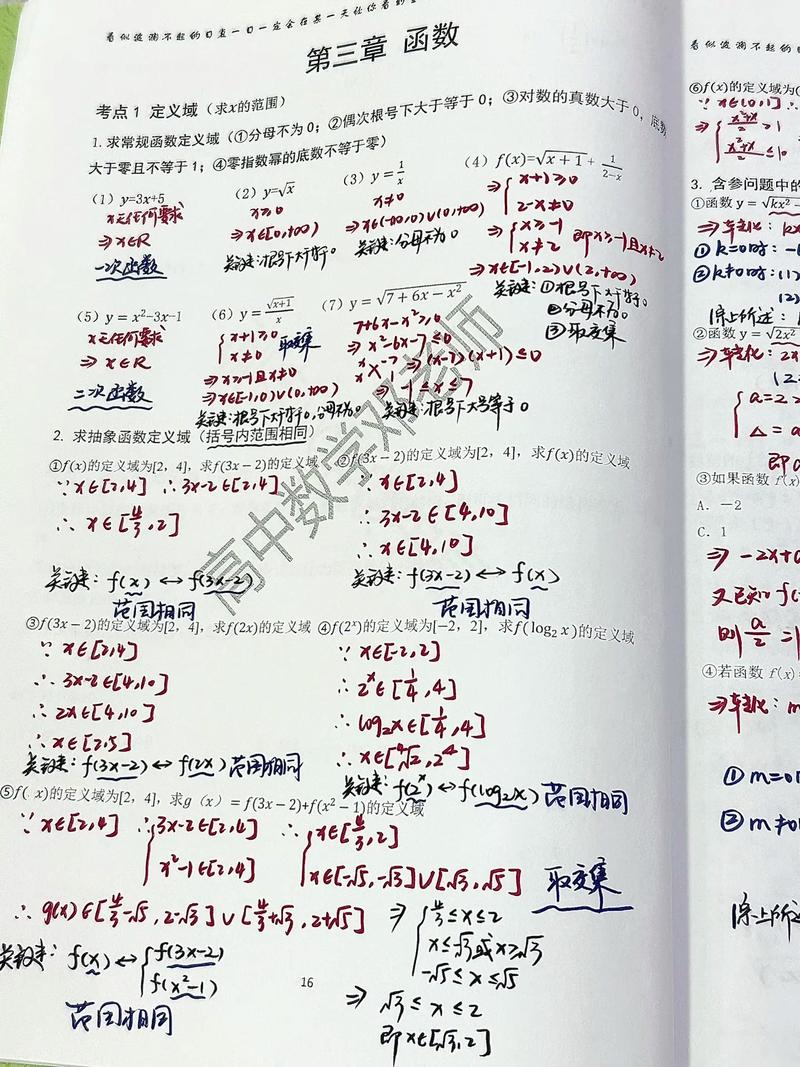 看似波澜不起的日复一日一定会在某一天让你看到
第三章 函数
考点1 定义域（求x的范围）
1.求常规函数定义域（①分母不为0；②偶次根号下大于等于0；③对数的真数大于0，底数
大于零且不等于1；④零指数幂的底数不等于零）
（1）y=3x+5
x无任何要求
⇒x∈R
一次函数
（2）y=√x
x≥0
⇒x∈[0,+∞)
关键：根号下大于等于0。
（3）y=1/x
x≠0
⇒x∈(-∞,0)∪(0,+∞)
关键：分母不为0
（4）f(x)=√(x+1)+1/(2-x)
⇒{x+1≥0
2-x≠0
⇒{x≥-1
x≠2 即x≥-1且x≠2
⇒x∈[-1,2)∪(2,+∞)
关键：①根号下大于等于0。
②分母不为0。
③取交集
（5）y=x²-3x-1
x无任何要求
⇒x∈R
二次函数
（6）y=√(x+1)/x
{x+1≥0
x≠0 取交集
⇒x≥-1且x≠0
⇒x∈[-1,0)∪(0,+∞)
关键：根号下大于等于0,分母不为0。
（7）y=√(7+6x-x²)
7+6x-x²≥0
⇒x²-6x-7≤0
x -7
x 1 ⇒(x-7)(x+1)≤0
⇒-1≤x≤7
关键：根号下大号等于0
2. 求抽象函数定义域（括号内范围相同）
①f(x)的定义域为[2，4]，求f(3x-2)的定义域
∵x∈[2,4] ∴3x-2∈[2,4]
∴x∈[4/3,2]
关键：f(x)↔f(3x-2)
范围相同
②f(3x-2)的定义域为[2，4]，求f(x)的定义域
∵x∈[2,4]
∴3x-2∈[4,10]
∴x∈[4,10]
关键：f(3x-2)↔f(x)
范围相同
③f(3x-2)的定义域为[2，4]，求f(2x)的定义域
∵x∈[2,4]
∴3x-2∈[4,10]
∴2x∈[4,10]
∴x∈[2,5]
关键：f(3x-2)↔f(2x)范围相同
④f(2ˣ)的定义域为[-2，2]，求f(log₂x)的定义域
∵x∈[-2,2]
∴2ˣ∈[1/4,4]
∴log₂x∈[1/4,4]
∴x∈[⁴√2,2⁴]
关键：f(2ˣ)↔f(log₂x)范围相同
⑤f( x)的定义域为[2，4]，求g（x）=f(3x-2)+f(x²-1)的定义域
∵x∈[2,4] ∴{3x-2∈[2,4]
x²-1∈[2,4]
∴{x∈[4/3,2]
x∈[-√5,-√3]∪[√3,√5] 取交集
∴g(x)∈[4/3-√5,2-√3]∪[4/3+√3,2+√5]
⇒{4/3≤x≤2
x≤√3或x≥√3
-√5≤x≤√5
⇒√3≤x≤2
即x∈[√3,2]
关键：f(x)↔{f(3x-2)
f(x²-1)
范围相同
16
高中数学邓老师
看似波澜不起的日
⑥f(x)的定义域为(
∵x∈(0,1]∴
3. 含参问题中的
①函数y=√kx²-
⇒转化：kx
①k=0时：-
②k≠0时：(1)
(2)
综上所述：
②函数y=√2x²
⇒转化：2x
{a=2>
△=a
即a
③如果函数f(x)
A. -2
C. 1
⇒-2x+a
又已知f(
则a/2=1
④若函数f(x)=
⇒转化：m
①m=0时
②m≠0
综上所述